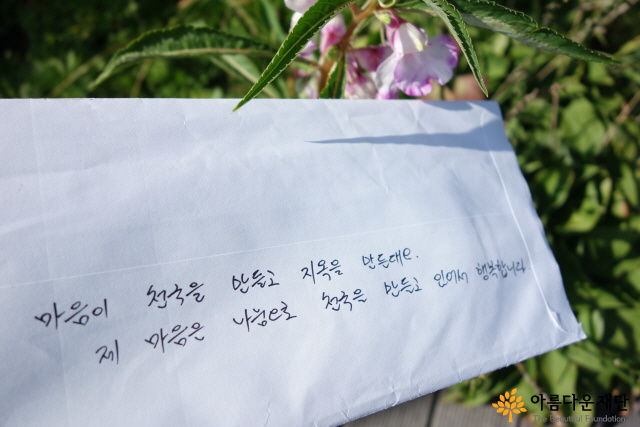 마음이 천국을 만들고 지옥을 만든대요.
제 마음은 나눔으로 천국을 만들고 있어서 행복합니다
아름다운재단
The Beautiful Foundation